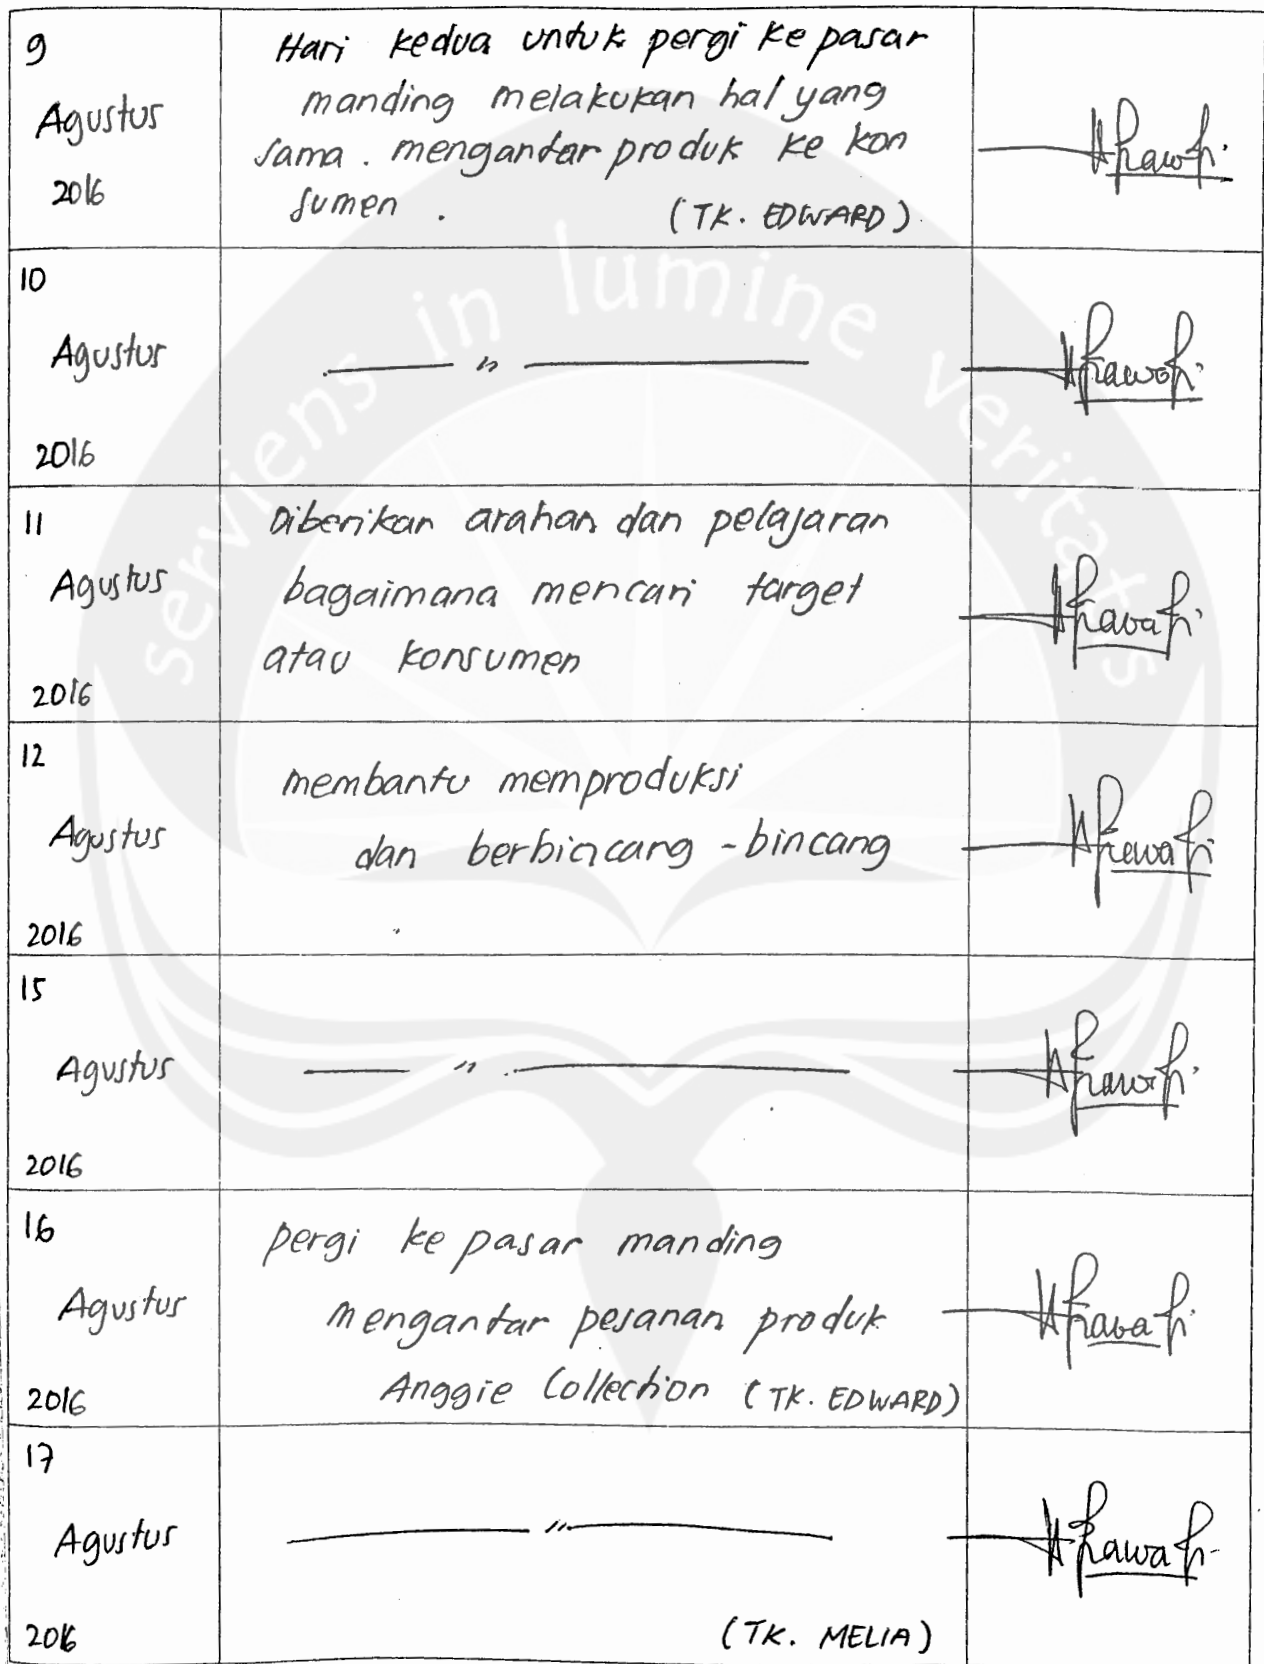 9
Agustus
2016
Hari kedua untuk pergi ke pasar
manding melakukan hal yang
sama. mengantar produk ke kon
sumen.
(TK. EDWARD)
10
Agustus
2016
— " —
11
Agustus
2016
Diberikan arahan dan pelajaran
bagaimana mencari target
atau konsumen
12
Agustus
2016
membantu memproduksi
dan berbincang-bincang
15
Agustus
2016
— " —
16
Agustus
2016
pergi ke pasar manding
mengantar pesanan produk
Anggie Collection (TK. EDWARD)
17
Agustus
2016
— " —
(TK. MELIA)
serviens in lumine veritatis